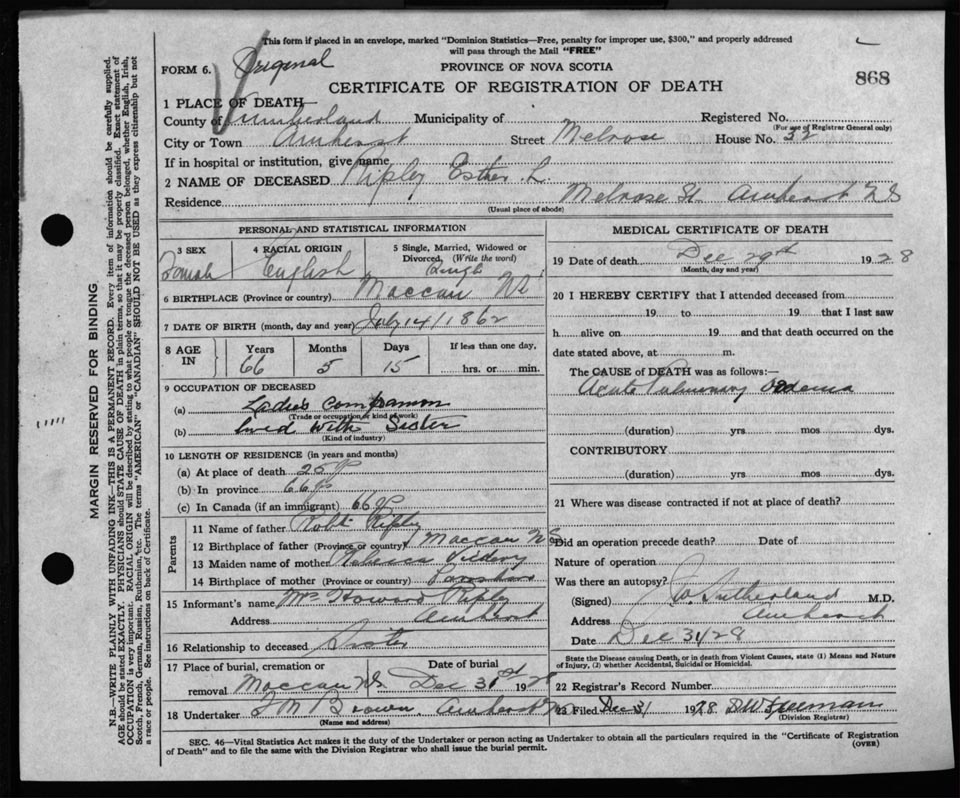 This form if placed in an envelope, marked "Dominion Statistics—Free, penalty for improper use, $300," and properly addressed
will pass through the Mail "FREE"
Original
FORM 6.
PROVINCE OF NOVA SCOTIA
868
CERTIFICATE OF REGISTRATION OF DEATH
1 PLACE OF DEATH—
County of Cumberland Municipality of Registered No.
(For use of Registrar General only)
City or Town Amherst Street Melrose House No. 32
If in hospital or institution, give name
2 NAME OF DECEASED Ripley Esther L.
Residence Melrose St. Amherst NS
(Usual place of abode)
PERSONAL AND STATISTICAL INFORMATION
3 SEX
4 RACIAL ORIGIN English
5 Single, Married, Widowed or
Divorced, (Write the word)
Single
6 BIRTHPLACE (Province or country) Maccan NS
7 DATE OF BIRTH (month, day and year) July 14/1862
8 AGE IN
Years Months Days If less than one day,
66 5 15 hrs. or min.
9 OCCUPATION OF DECEASED
(a) Ladies Companion
(Trade or occupation or kind of work)
(b) lived with Sister
(Kind of industry)
10 LENGTH OF RESIDENCE (in years and months)
(a) At place of death 25
(b) In province 66
(c) In Canada (if an immigrant) 66
Parents
11 Name of father Robt Ripley
12 Birthplace of father (Province or country) Maccan NS
13 Maiden name of mother Rebecca
14 Birthplace of mother (Province or country)
15 Informant's name Mrs Howard Ripley
Address Amherst
16 Relationship to deceased Sister
17 Place of burial, cremation or
removal Maccan NS
Date of burial
Dec 31st 1928
18 Undertaker Brown, Amherst
(Name and address)
MEDICAL CERTIFICATE OF DEATH
19 Date of death Dec 29th 1928
(Month, day and year)
20 I HEREBY CERTIFY that I attended deceased from
19 to 19 that I last saw
h alive on 19 and that death occurred on the
date stated above, at m.
The CAUSE of DEATH was as follows:
Acute Pulmonary Oedema
(duration) yrs mos dys.
CONTRIBUTORY
(duration) yrs mos dys.
21 Where was disease contracted if not at place of death?
Did an operation precede death? Date of
Nature of operation
Was there an autopsy?
(Signed) Sutherland M.D.
Address Amherst
Date Dec 31/28
State the Disease causing Death, or in death from Violent Causes, state (1) Means and Nature
of Injury, (2) whether Accidental, Suicidal or Homicidal.
22 Registrar's Record Number
23 Filed Dec 31 1928 Freeman
(Division Registrar)
SEC. 46—Vital Statistics Act makes it the duty of the Undertaker or person acting as Undertaker to obtain all the particulars required in the "Certificate of Registration
of Death" and to file the same with the Division Registrar who shall issue the burial permit.
(OVER)
MARGIN RESERVED FOR BINDING
N.B.—WRITE PLAINLY WITH UNFADING INK—THIS IS A PERMANENT RECORD. Every item of information should be carefully supplied.
AGE should be stated EXACTLY. PHYSICIANS should STATE CAUSE OF DEATH in plain terms, so that it may be properly classified. Exact statement of
OCCUPATION is very important. RACIAL ORIGIN will be described by stating to what people or tongue the deceased person belonged, whether English, Irish,
Scotch, French, German, Russian, Ruthenian, etc. The terms "AMERICAN" or "CANADIAN" SHOULD NOT BE USED as they express citizenship but not
a race or people. See instructions on back of Certificate.